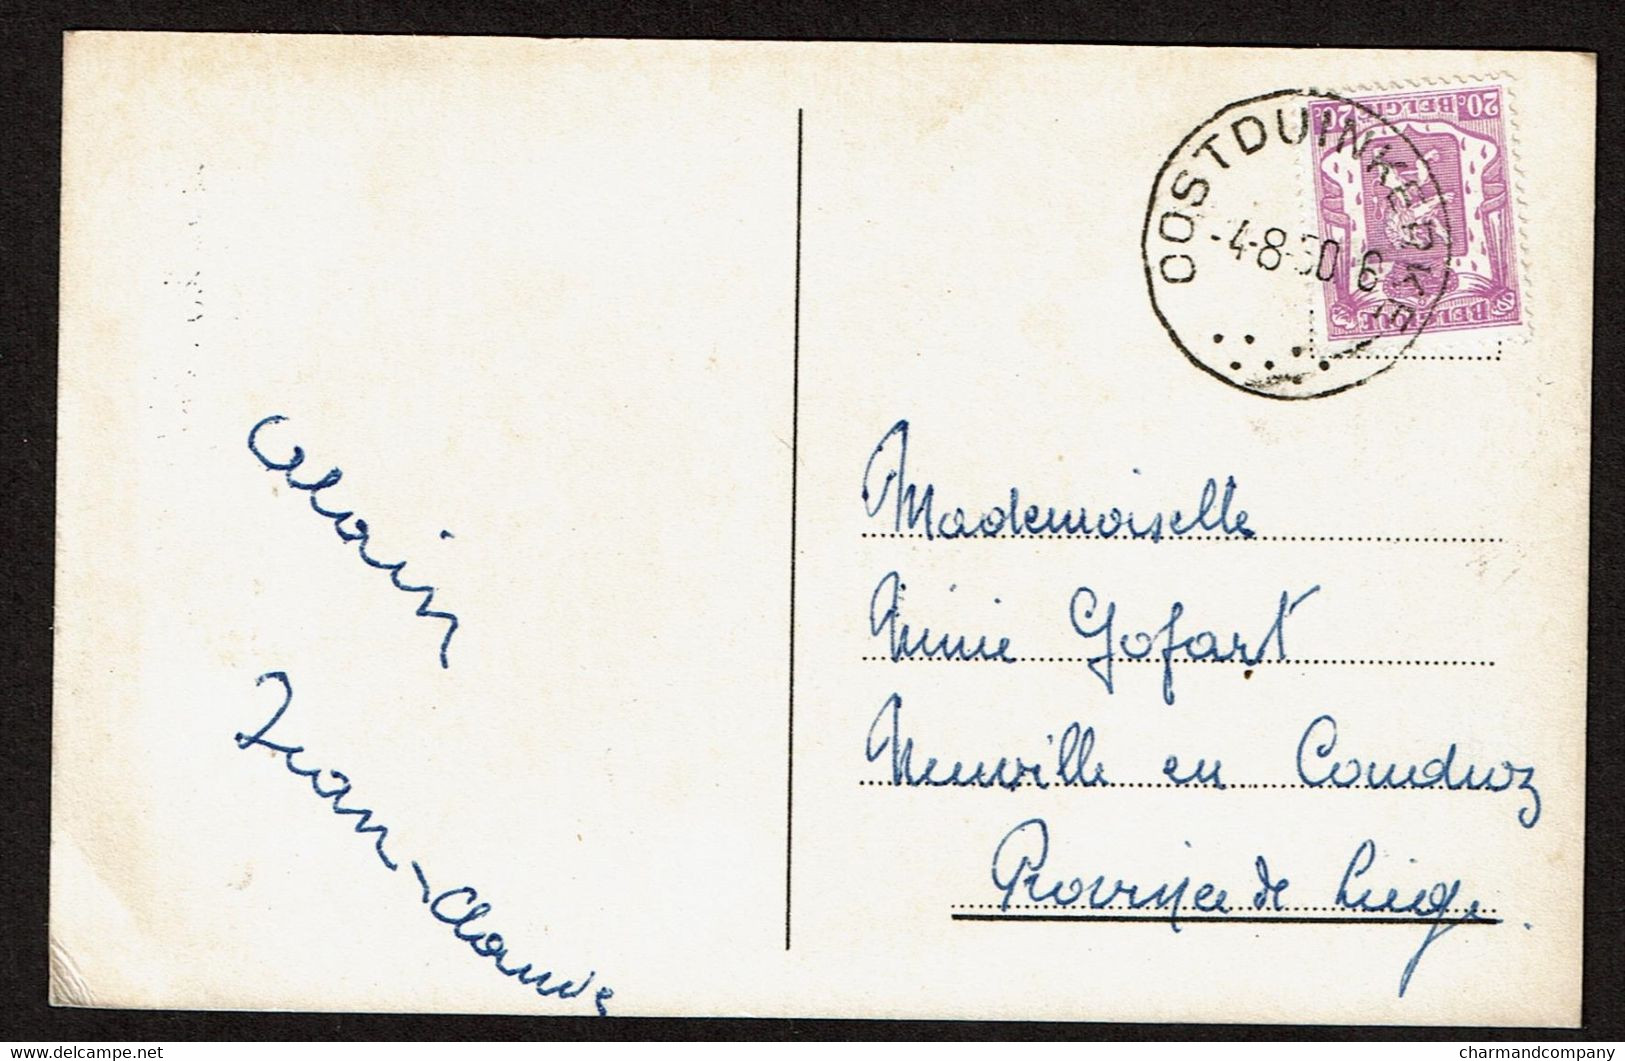 Alain
Jean-Claude
OOSTDUINKERKE
-4-8-50
20c BELGIE 20c
BELGIQUE
Mademoiselle
Mimie Gofart
Neuville en Condroz
Province de Liège.
charmandcompany